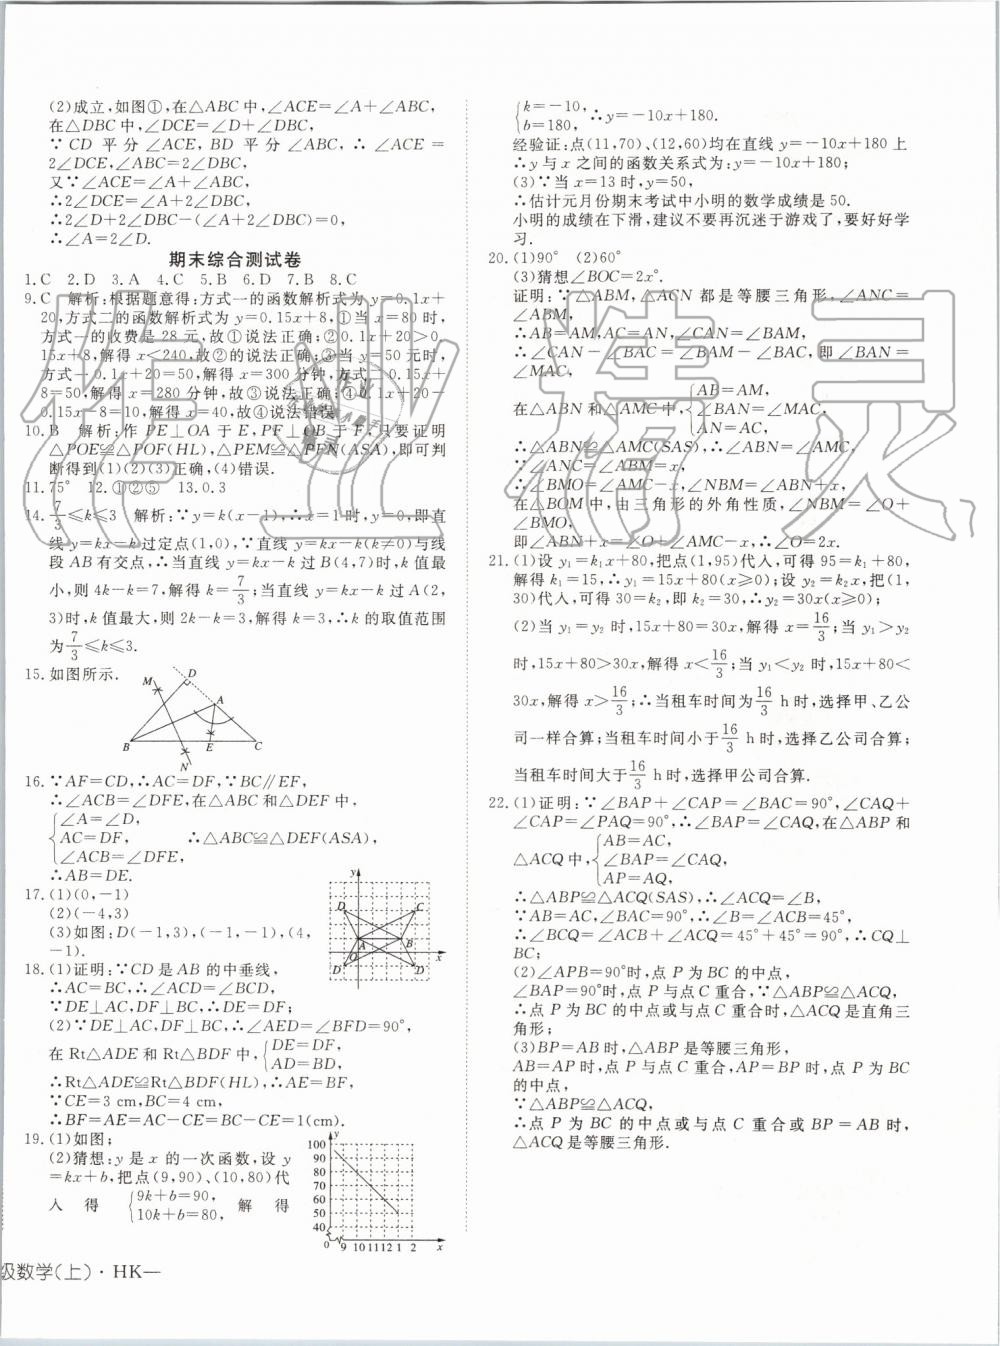 (2)成立,如图①,在△ABC中,∠ACE=∠A+∠ABC,
在△DBC中,∠DCE=∠D+∠DBC,
∵CD平分∠ACE,BD平分∠ABC,∴∠ACE=
2∠DCE,∠ABC=2∠DBC,
又∵∠ACE=∠A+∠ABC,
∴2∠DCE=∠A+2∠DBC,
∴2∠D+2∠DBC-(∠A+2∠DBC)=0,
∴∠A=2∠D.
期末综合测试卷
1.C 2.D 3.A 4.C 5.B 6.D 7.B 8.C
9.C 解析:根据题意得:方式一的函数解析式为y=0.1x+
20,方式二的函数解析式为y=0.15x+8,①当x=80时,
方式一的收费是28元,故①说法正确;②0.1x+20>0.
15x+8,解得x<240,故②说法正确;③当y=50元时,
方式一0.1x+20=50,解得x=300分钟,方式二0.15x+
8=50,解得x=280分钟,故③说法正确;④0.1x+20-
0.15x-8=10,解得x=40,故④说法错误.
10.B 解析:作PE⊥OA于E,PF⊥OB于F,只要证明
△POE≌△POF(HL),△PEM≌△PFN(ASA),即可判
断得到(1)(2)(3)正确,(4)错误.
11.75° 12.①②⑤ 13.0.3
14.7/3≤k≤3 解析:∵y=k(x-1),∴x=1时,y=0,即直
线y=kx-k过定点(1,0),∵直线y=kx-k(k≠0)与线
段AB有交点,∴当直线y=kx-k过B(4,7)时,k值最
小,则4k-k=7,解得k=7/3;当直线y=kx-k过A(2,
3)时,k值最大,则2k-k=3,解得k=3,∴k的取值范围
为7/3≤k≤3.
15.如图所示.
M D A B E C N
16.∵AF=CD,∴AC=DF,∵BC∥EF,
∴∠ACB=∠DFE,在△ABC和△DEF中,
∠A=∠D,
AC=DF, ∴△ABC≌△DEF(ASA),
∠ACB=∠DFE,
∴AB=DE.
17.(1)(0,-1)
(2)(-4,3)
(3)如图:D(-1,3),(-1,-1),(4,
-1).
y D C A B O x D D
18.(1)证明:∵CD是AB的中垂线,
∴AC=BC,∴∠ACD=∠BCD,
∵DE⊥AC,DF⊥BC,∴DE=DF;
(2)∵DE⊥AC,DF⊥BC,∴∠AED=∠BFD=90°,
在Rt△ADE和Rt△BDF中,{DE=DF,
AD=BD,
∴Rt△ADE≌Rt△BDF(HL),∴AE=BF,
∵CE=3 cm,BC=4 cm,
∴BF=AE=AC-CE=BC-CE=1(cm).
19.(1)如图;
(2)猜想:y是x的一次函数,设y
=kx+b,把点(9,90)、(10,80)代
入得{9k+b=90,
10k+b=80,解得
100 y
90
80
70
60
50
40
0 9 10 11 12 1 2 x
{k=-10,
b=180,∴y=-10x+180.
经验证:点(11,70)、(12,60)均在直线y=-10x+180上
∴y与x之间的函数关系式为:y=-10x+180;
(3)∵当x=13时,y=50,
∴估计元月份期末考试中小明的数学成绩是50.
小明的成绩在下滑,建议不要再沉迷于游戏了,要好好学
习.
20.(1)90° (2)60°
(3)猜想∠BOC=2x°.
证明:∵△ABM,△ACN都是等腰三角形,∠ANC=
∠ABM,
∴AB=AM,AC=AN,∠CAN=∠BAM,
∴∠CAN-∠BAC=∠BAM-∠BAC,即∠BAN=
∠MAC,
AB=AM,
在△ABN和△AMC中,{∠BAN=∠MAC,
AN=AC,
∴△ABN≌△AMC(SAS),∴∠ABN=∠AMC,
∵∠ANC=∠ABM=x,
∴∠BMO=∠AMC-x,∠NBM=∠ABN+x,
在△BOM中,由三角形的外角性质,∠NBM=∠O+
∠BMO,
即∠ABN+x=∠O+∠AMC-x,∴∠O=2x.
21.(1)设y₁=k₁x+80,把点(1,95)代入,可得95=k₁+80,
解得k₁=15,∴y₁=15x+80(x≥0);设y₂=k₂x,把(1,
30)代入,可得30=k₂,即k₂=30,∴y₂=30x(x≥0);
(2)当y₁=y₂时,15x+80=30x,解得x=16/3;当y₁>y₂
时,15x+80>30x,解得x<16/3;当y₁<y₂时,15x+80<
30x,解得x>16/3;∴当租车时间为16/3 h时,选择甲、乙公
司一样合算;当租车时间小于16/3 h时,选择乙公司合算;
当租车时间大于16/3 h时,选择甲公司合算.
22.(1)证明:∵∠BAP+∠CAP=∠BAC=90°,∠CAQ+
∠CAP=∠PAQ=90°,∴∠BAP=∠CAQ,在△ABP和
AB=AC,
△ACQ中,{∠BAP=∠CAQ,
AP=AQ,
∴△ABP≌△ACQ(SAS),∴∠ACQ=∠B,
∵AB=AC,∠BAC=90°,∴∠B=∠ACB=45°,
∴∠BCQ=∠ACB+∠ACQ=45°+45°=90°,∴CQ⊥
BC;
(2)∠APB=90°时,点P为BC的中点,
∠BAP=90°时,点P与点C重合,∵△ABP≌△ACQ,
∴点P为BC的中点或与点C重合时,△ACQ是直角三
角形;
(3)BP=AB时,△ABP是等腰三角形,
AB=AP时,点P与点C重合,AP=BP时,点P为BC
的中点,
∵△ABP≌△ACQ,
∴点P为BC的中点或与点C重合或BP=AB时,
△ACQ是等腰三角形.
级数学(上)·HK—
作业精灵